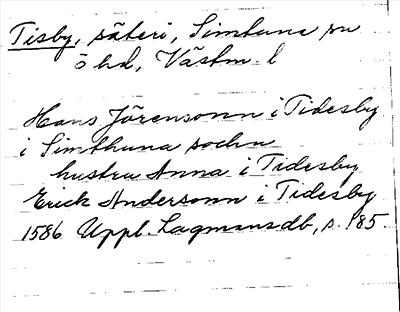 Tisby, säteri, Simtuna sn
Ö hd, Västm. l
Hans Jörensonn i Tidesby
i Simthuna sochn
hustru Anna i Tidesby
Erick Andersonn i Tidesby
1586 Uppl. Lagmansdb, s. 185.